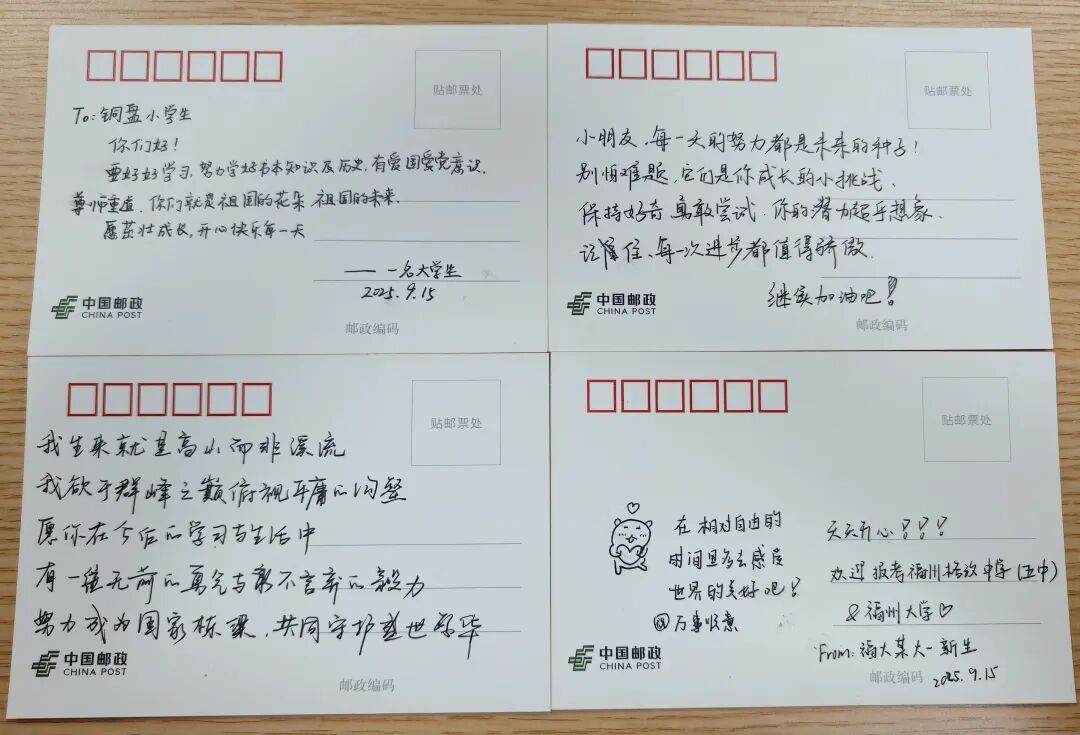 贴邮票处
To: 铜盘小学生
你们好！
要好好学习，努力学好书本知识及历史，有爱国爱党意识，
尊师重道，你们就是祖国的花朵 祖国的未来。
愿茁壮成长，开心快乐每一天
—— 一名大学生
2025.9.15
中国邮政
CHINA POST
邮政编码
贴邮票处
小朋友，每一天的努力都是未来的种子！
别怕难题，它们是你成长的小挑战。
保持好奇 勇敢尝试，你的潜力超乎想象。
记住，每一次进步都值得骄傲。
继续加油吧！
中国邮政
CHINA POST
邮政编码
贴邮票处
我生来就是高山而非溪流
我欲于群峰之巅俯视平庸的沟壑
愿你在今后的学习与生活中
有一往无前的勇气与永不言弃的毅力
努力成为国家栋梁，共同守护盛世繁华
中国邮政
CHINA POST
邮政编码
贴邮票处
在相对自由的
时间里多去感受
世界的美好吧！
祝万事胜意
天天开心！！！
欢迎报考福州格致中学(五中)
&福州大学♡
From: 福大某大一新生
2025.9.15
中国邮政
CHINA POST
邮政编码